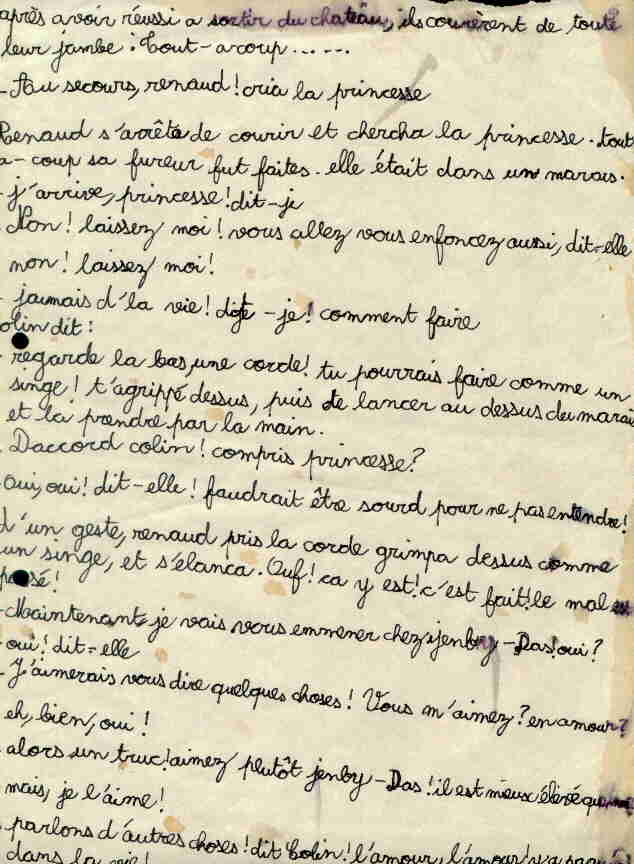 après avoir réussi a sortir du chateâu, ils courèrent de toute
leur jambe : Tout-a coup ......
- Au secours, renaud ! cria la princesse
Renaud s'arrêta de courir et chercha la princesse. tout
a-coup sa fureur fut faites. elle était dans un marais.
- j'arrive, princesse ! dit-je
- Non ! laissez moi ! vous allez vous enfoncez aussi, dit-elle
non ! laissez moi !
- jaumais d'la vie ! dit-je ! comment faire
olin dit :
- regarde la bas, une corde ! tu pourrais faire comme un
singe ! t'agrippé dessus, puis te lancer au dessus du marais
et la prendre par la main.
- Daccord colin ! compris princesse ?
- oui, oui ! dit-elle ! faudrait être sourd pour ne pas entendre !
d'un geste, renaud pris la corde grimpa dessus comme
un singe, et s'élanca. Ouf ! ca y est ! c'est fait ! le mal est
passé !
- Maintenant je vais vous emmener chez jenby-Das ! oui ?
- oui ! dit-elle
- J'aimerais vous dire quelques choses ! Vous m'aimez ? en amour ?
eh, bien, oui !
- alors un truc ! aimez plutôt jenby-Das ! il est mieux élevé que
mais, je l'aime !
- parlons d'autres choses ! dit Colin ! l'amour, l'amour !
dans la vie !